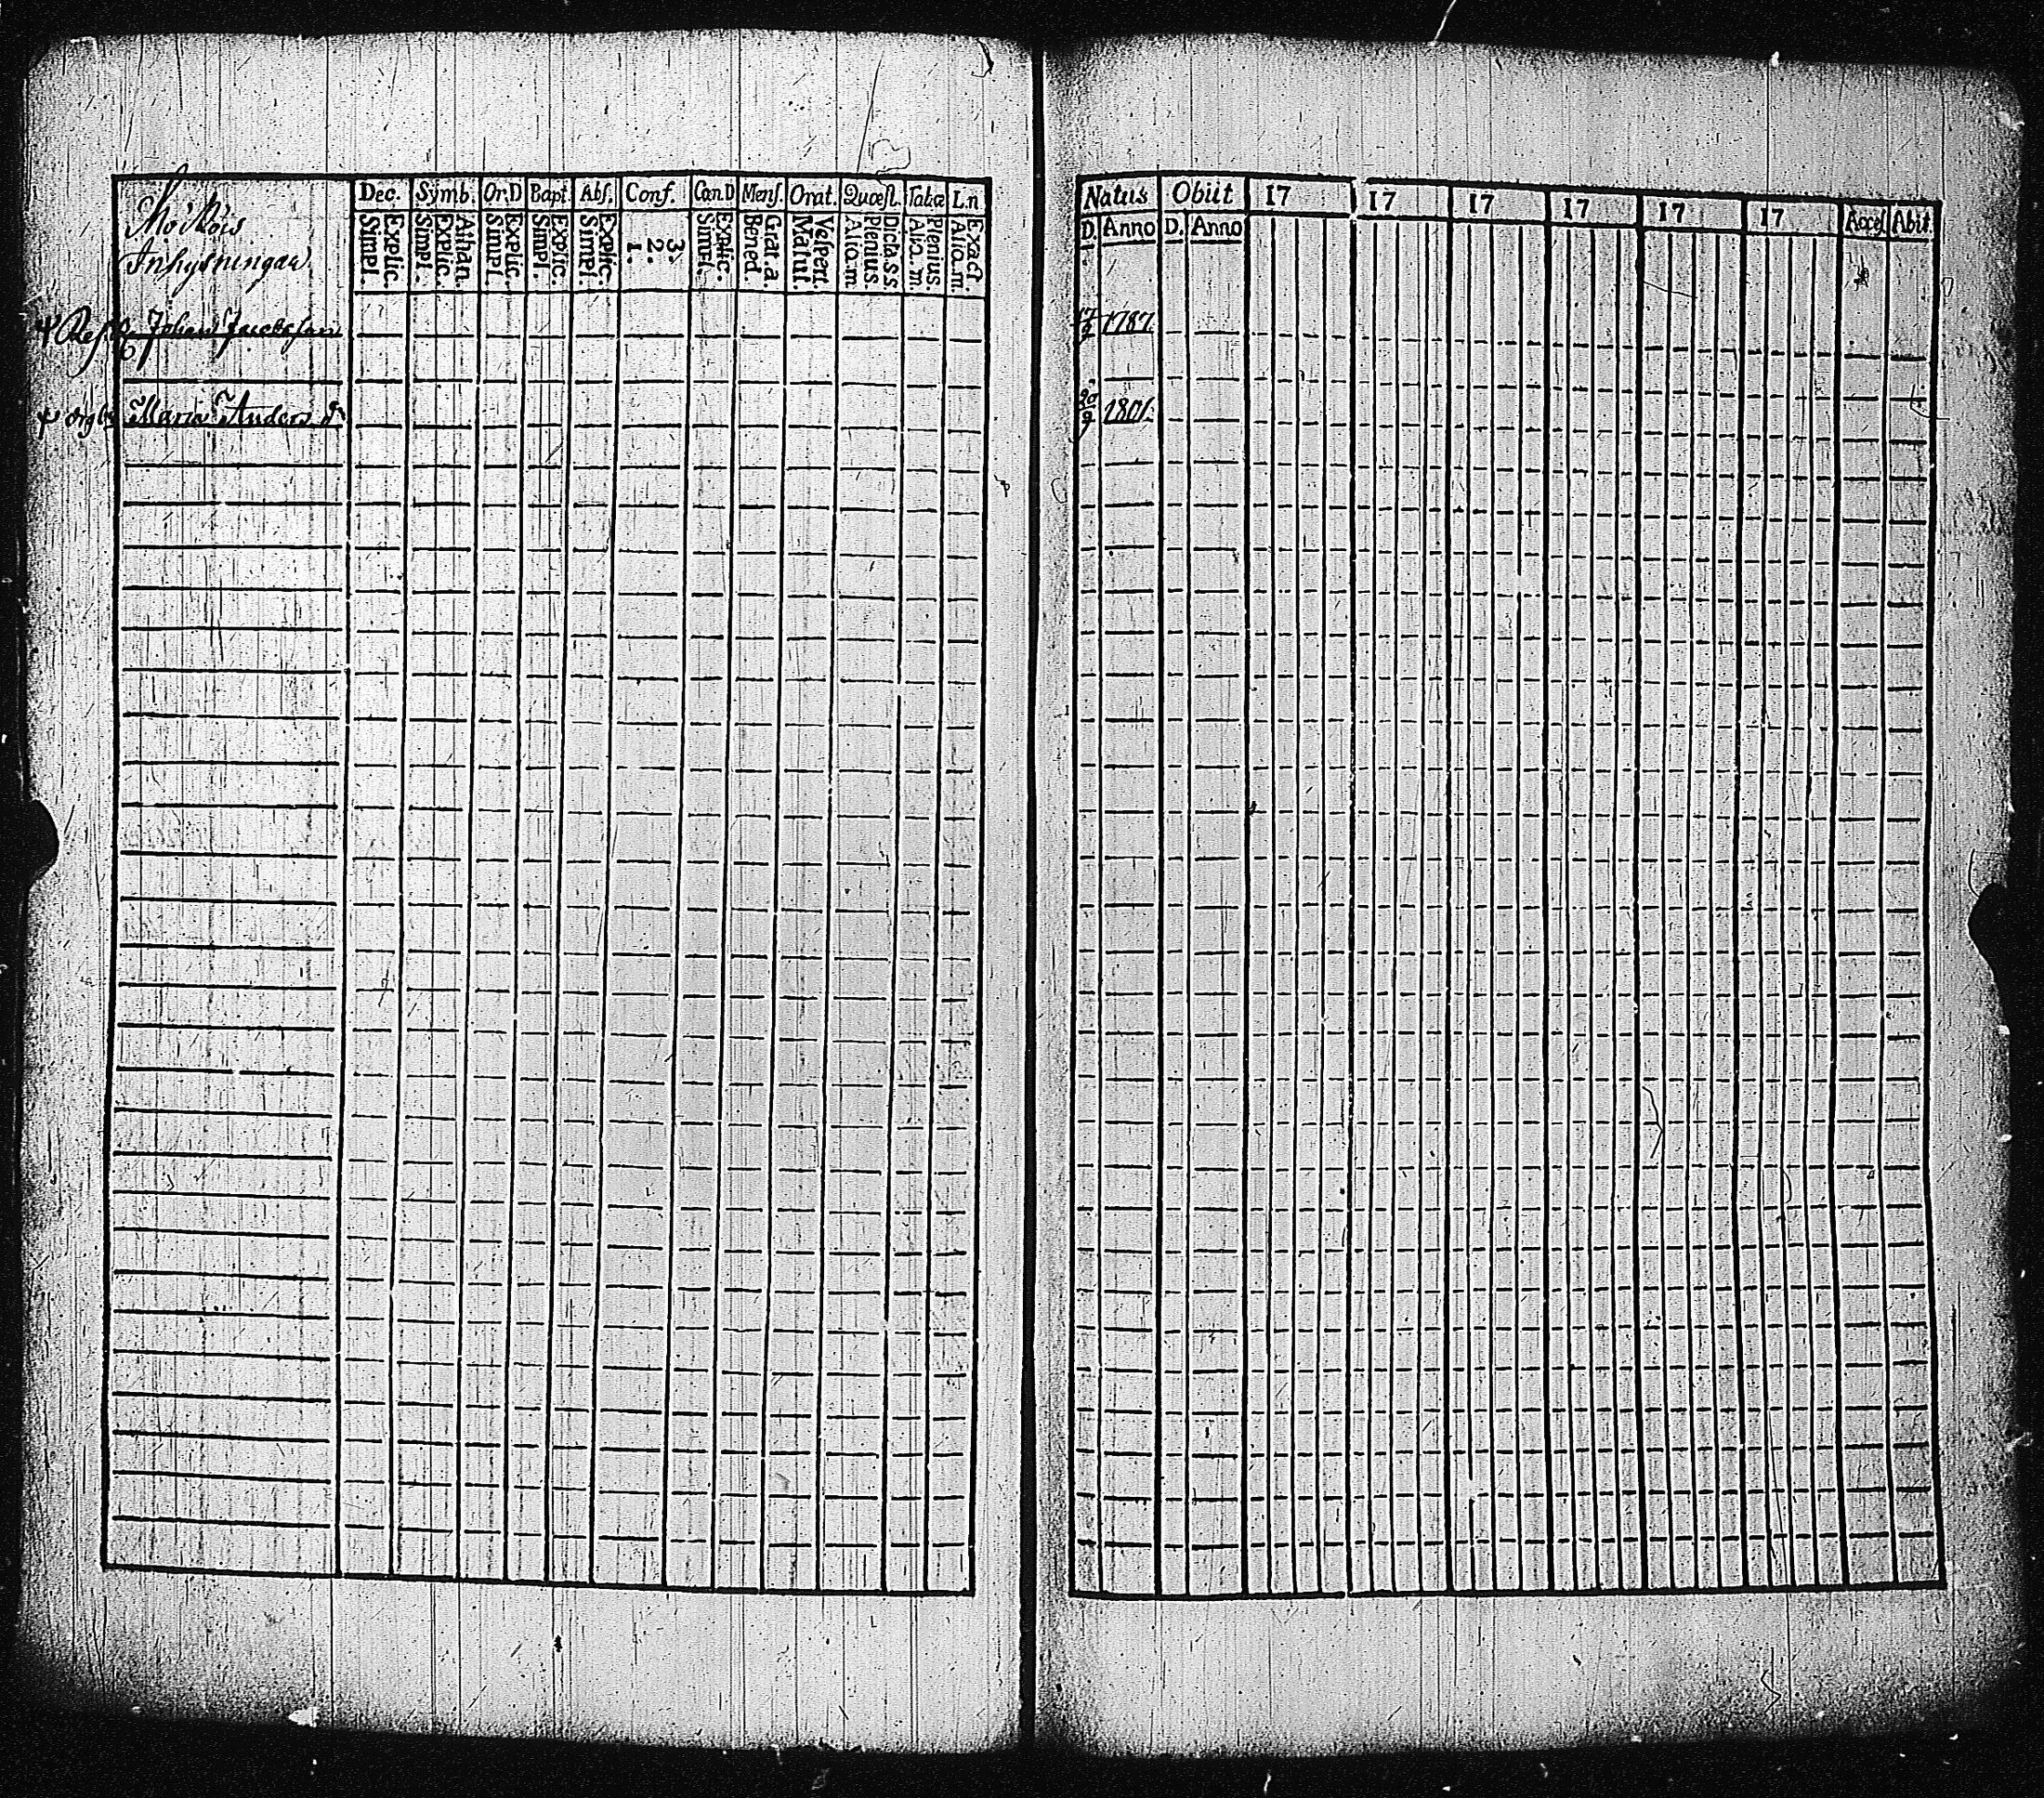 Inhysningar
Dec. Symb. Or.D Bapt. Abſ. Conf. Cœn.D Menſ. Orat. Quœſt. Tabœ L.n
Simpl. Explic. Simpl. Explic. Athan. Simpl. Explic. Simpl. Explic. Simpl. Explic. 1. 2. 3. Simpl. Explic. Bened. Grat.a. Matut. Veſpert. Alio.m Plenius. Dicta.s.s. Alio.m Plenius. Alio.m. Exact
Johan Jacobsson
Maria Anders dr
Natus Obiit 17 17 17 17 17 17 Acceſ. Abit.
D. Anno D. Anno
1787.
20/9 1801.